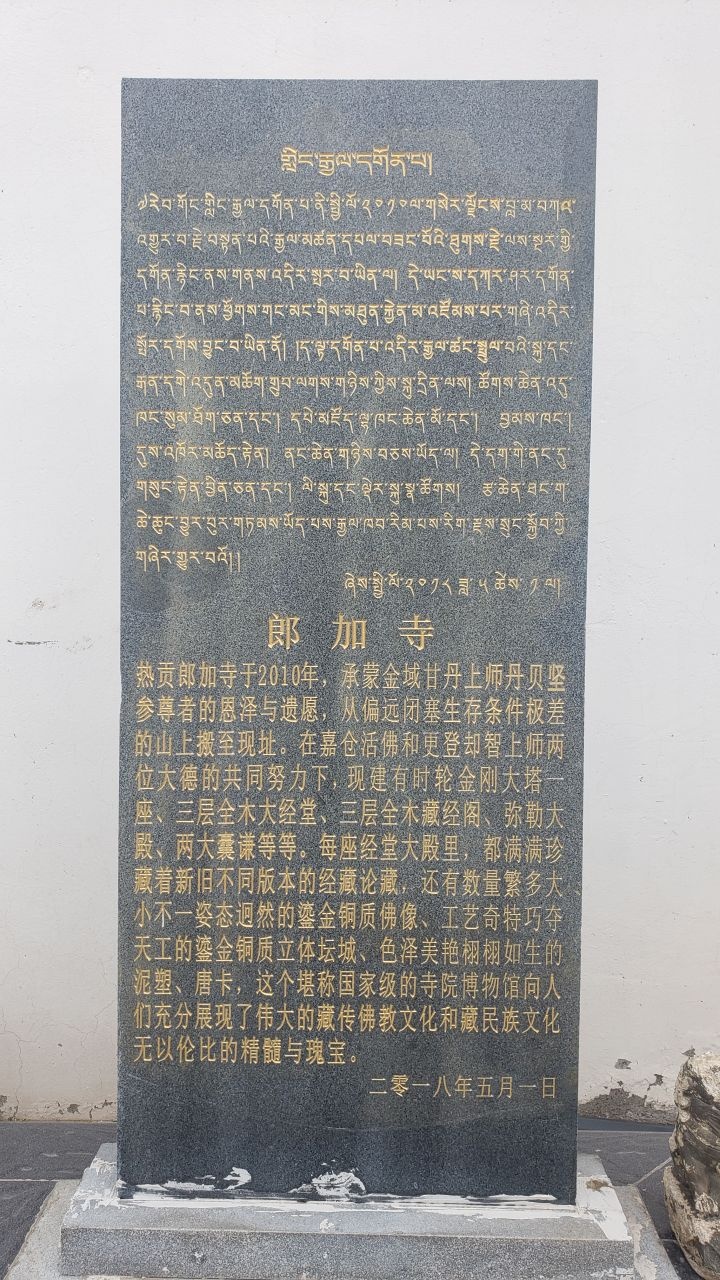 གླིང་རྒྱལ་དགོན་པ།
༧རེབ་གོང་གླིང་རྒྱལ་དགོན་པ་ནི་སྤྱི་ལོ་༢༠༡༠ལ་གསེར་ལྗོངས་བླ་མ་བཀའ་
འགྱུར་བ་རྗེ་བསྟན་པའི་རྒྱལ་མཚན་དཔལ་བཟང་པོའི་ཐུགས་རྗེ་ལས་སྔར་གྱི་
དགོན་རྙིང་ནས་གནས་འདིར་སྤར་བ་ཡིན་ལ། དེ་ཡང་ས་དཀར་ཤར་དགོན་
པ་རྙིང་བ་ནས་ཕྱོགས་གང་མང་གིས་མཐུན་རྐྱེན་མ་འཛོམས་པར་གཞི་འདིར་
སྤོར་དགོས་བྱུང་བ་ཡིན་ནོ། །ད་ལྟ་དགོན་པ་འདིར་རྒྱལ་ཚང་སྤྲུལ་བའི་སྐུ་དང་
རྒན་དགེ་འདུན་མཆོག་གྲུབ་ལགས་གཉིས་ཀྱིས་སྐུ་དྲིན་ལས། ཚོགས་ཆེན་འདུ་
ཁང་སུམ་ཐོག་ཅན་དང་། དཔེ་མཛོད་ལྷ་ཁང་ཆེན་མོ་དང་། བྱམས་ཁང་།
དུས་འཁོར་མཆོད་རྟེན། ནང་ཆེན་གཉིས་བཅས་ཡོད་ལ། དེ་དག་གི་ནང་དུ་
གསུང་རྟེན་བྱིན་ཅན་དང་། ལི་སྐུ་དང་ལྡེར་སྐུ་སྣ་ཚོགས། རྩ་ཆེན་ཐང་ག་
ཆེ་ཆུང་བྱུར་བུར་གཏམས་ཡོད་པས་རྒྱལ་ཁབ་རིམ་པས་རིག་རྫས་སྲུང་སྐྱོབ་ཀྱི་
གཞིར་གྱུར་བའོ།།
ཞེས་སྤྱི་ལོ་༢༠༡༨ ཟླ་ ༥ ཚེས་ ༡ ལ།
郎加寺
热贡郎加寺于2010年，承蒙金域甘丹上师丹贝坚
参尊者的恩泽与遗愿，从偏远闭塞生存条件极差
的山上搬至现址。在嘉仓活佛和更登却智上师两
位大德的共同努力下，现建有时轮金刚大塔一
座、三层全木大经堂、三层全木藏经阁、弥勒大
殿、两大囊谦等等。每座经堂大殿里，都满满珍
藏着新旧不同版本的经藏论藏，还有数量繁多大、
小不一姿态迥然的鎏金铜质佛像、工艺奇特巧夺
天工的鎏金铜质立体坛城、色泽美艳栩栩如生的
泥塑、唐卡，这个堪称国家级的寺院博物馆向人
们充分展现了伟大的藏传佛教文化和藏民族文化
无以伦比的精髓与瑰宝。
二零一八年五月一日